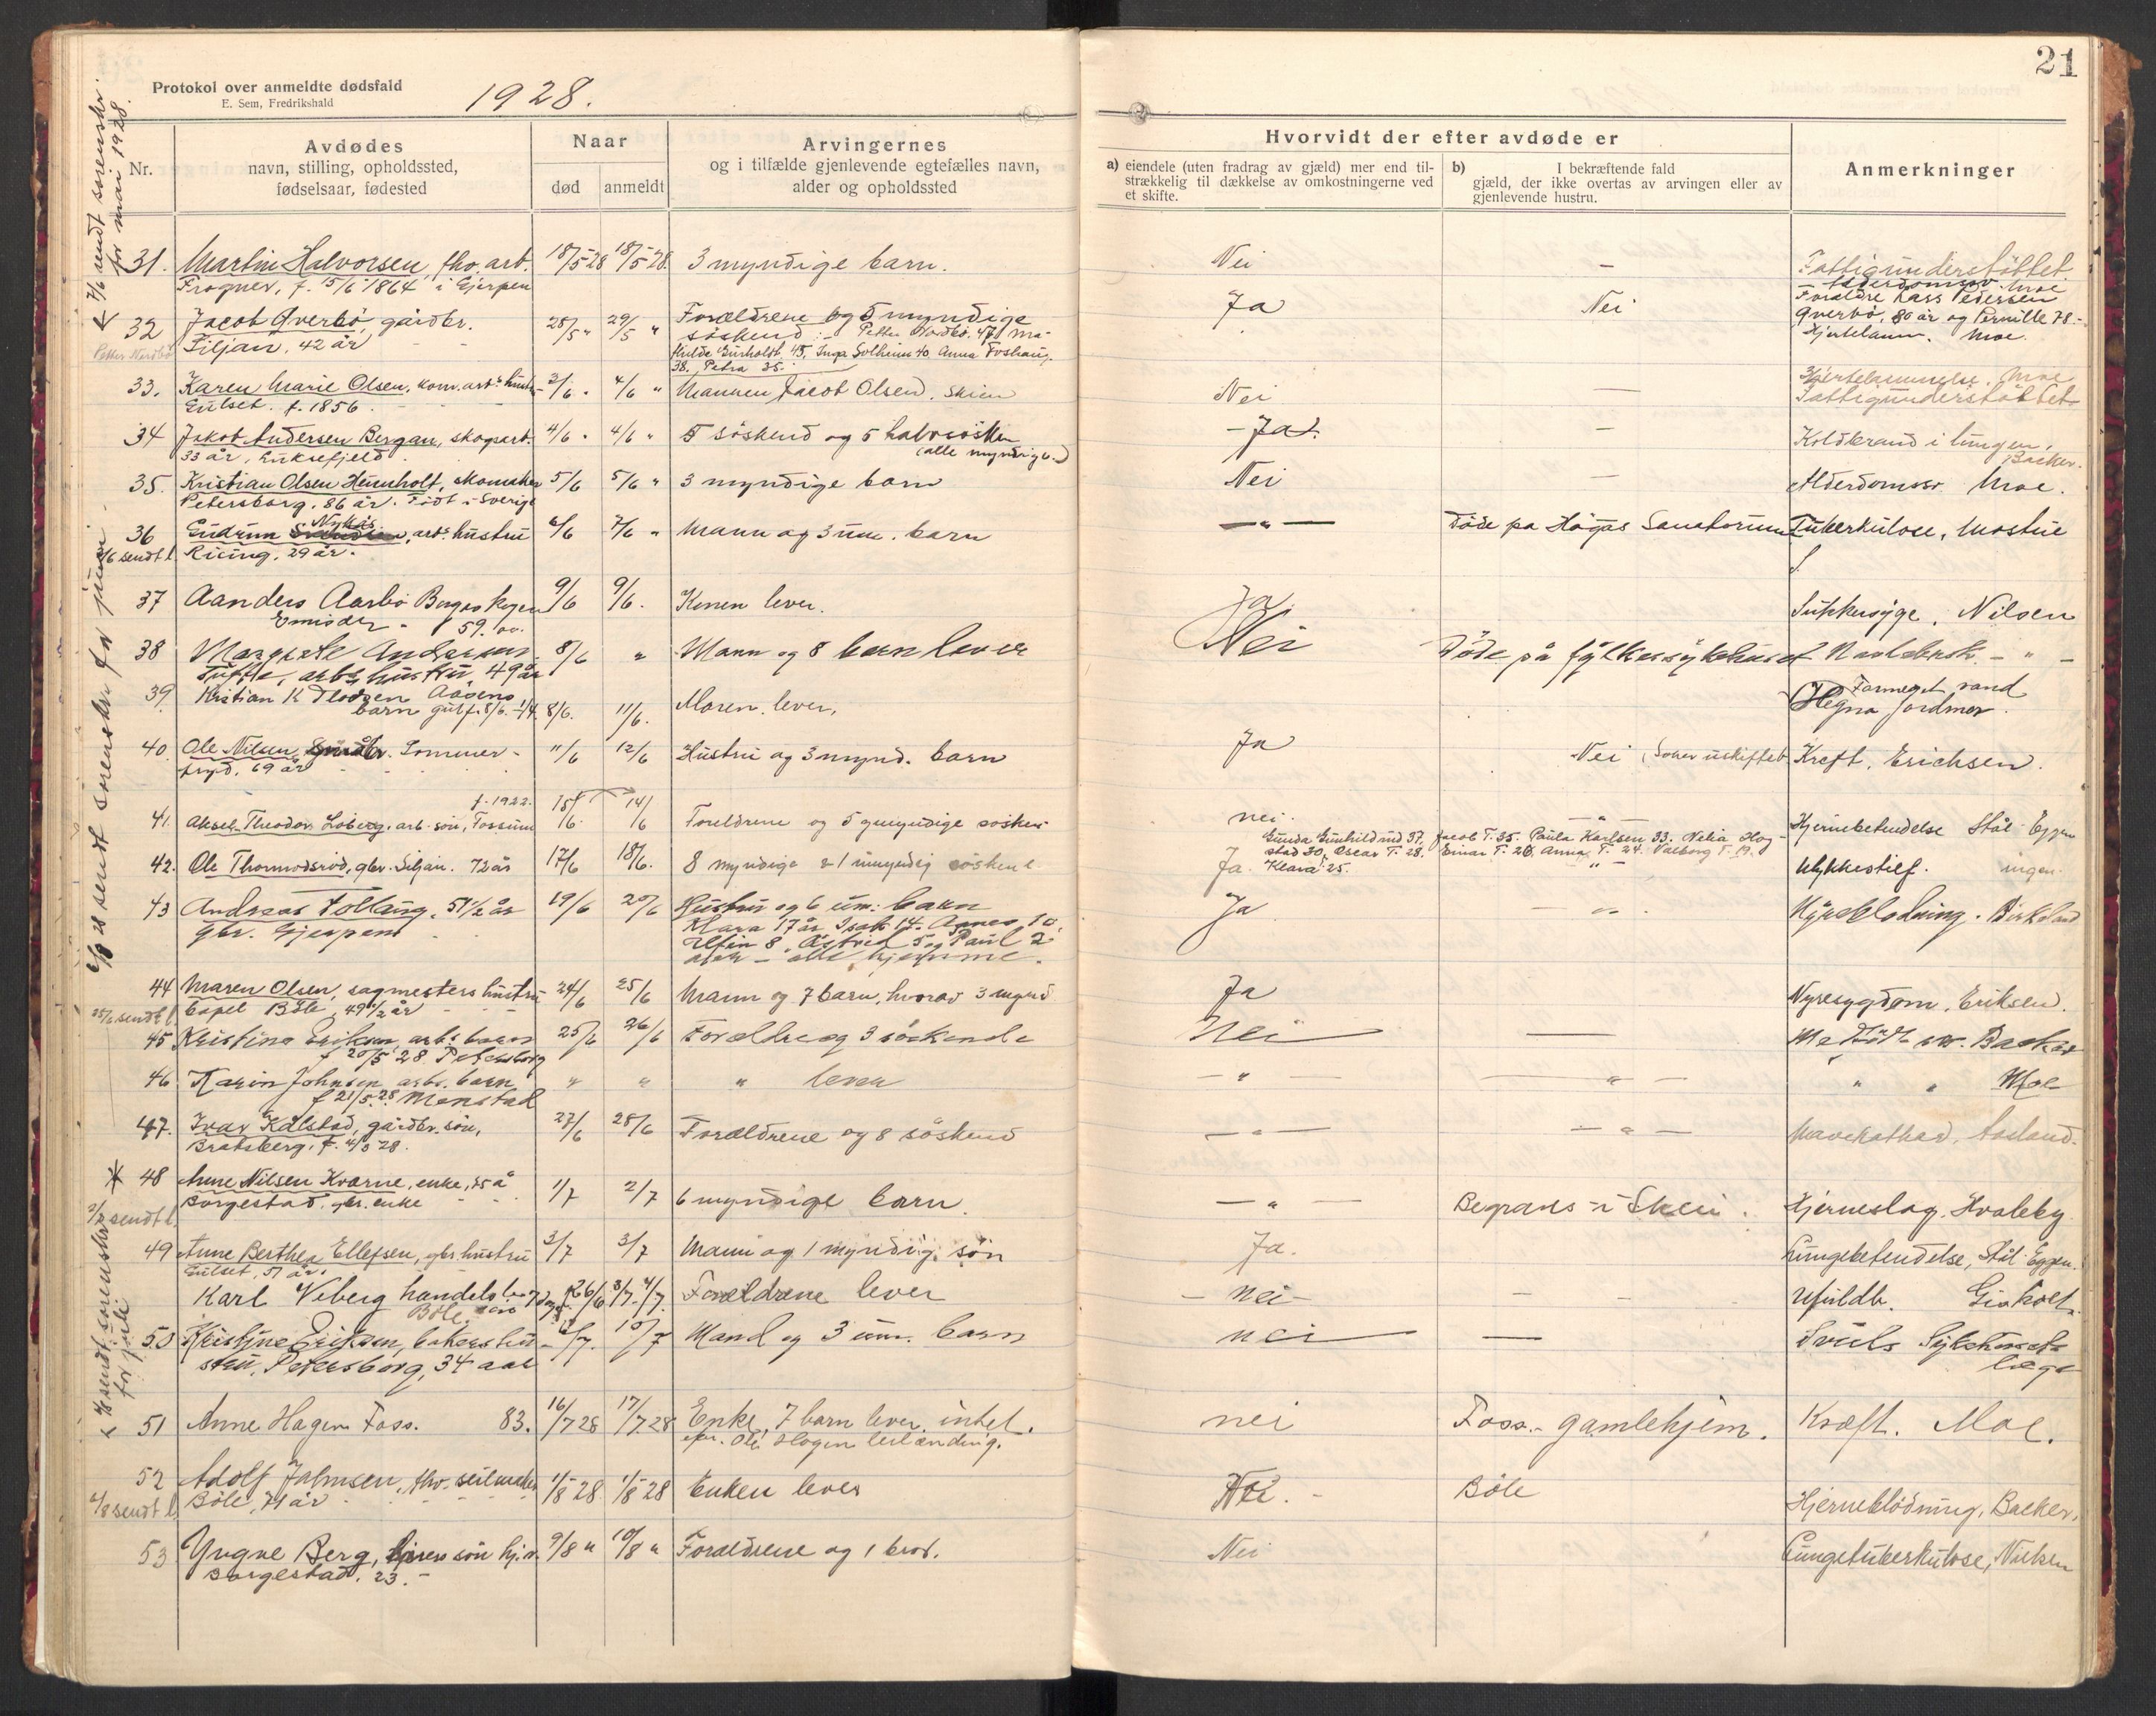 21
Protokol over anmeldte dødsfald
E. Sem, Fredrikshald
1928.
Nr.
Avdødes
navn, stilling, opholdssted,
fødselsaar, fødested
Naar
død
anmeldt
Arvingernes
og i tilfælde gjenlevende egtefælles navn,
alder og opholdssted
Hvorvidt der efter avdøde er
a) eiendele (uten fradrag av gjæld) mer end til-
strækkelig til dækkelse av omkostningerne ved
et skifte.
b) I bekræftende fald
gjæld, der ikke overtas av arvingen eller av
gjenlevende hustru.
Anmerkninger
7/6 sendt sorenskr.
for mai 1928.
31. Martin Halvorsen, fho. arb. 18/5 28 18/5 28. 3 myndige barn. Nei — Fattigunderstöttet.
Frogner, f. 15/6 1864 i Gjerpen Alderdomssv. Moe
32 Jacob Qverbö, gårdbr. 28/5 " 29/5 " Forældrene og 5 myndige Ja Nei Foraldre Lars Pedersen
Siljan. 42 år söskend :- Petter Nordbö. 47, Ma- Qverbö, 80 år og Pernille 78.-
Petter Nordbö thilde Gurholt 45, Inga Solheim 40 Anna Foshaug Hjertelam. Moe.
38, Petra 35.
33. Karen Marie Olsen, kom. arb.s hustru 3/6 " 4/6 " Mannen Jacob Olsen, Skien Nei — Hjertelammelse. Moe
Gulset. f. 1856. Fattigunderstöttet
34 Jakob Andersen Bergan, skogsarb. 4/6 " 4/6 " 5 söskend og 5 halvsösken Ja. — Koldbrand i lungen,
33 år, Luksefjeld (alle myndige.) Backer.
35. Kristian Olsen Heimholt, skomaker 5/6 5/6 " 3 myndige barn Nei — Alderdomssv. Moe.
Petersborg, 86 år. Födt i Sverige
36 Gudrun Nykås, arb.s hustru 6/6 7/6 " Mann og 3 um. barn — " — Döde pa Högås Sanatorium Tuberkulose, Mostue
/6 sendt l. Riising, 29 år.
37 Aanders Aarbö Borges kogen 9/6 9/6. Konen lever. Ja. Sukkersyge. Nilsen
59. aa.
38 Margrete Andersen 8/6 " Mann og 8 barn lever Nei Döde på fylkessykehuset " —
Tufte, arb.s hustru 49 år
39. Kristian K Flodsen Aasens 8/6. 11/6. Moren lever, 
barn
Hegna jordmor.
40. Ole Nilsen, Sommer- 11/6 12/6 Hustru og 3 mynd. barn Ja Nei (Sover uskiftet Kreft, Erichsen.
fryd, 69 år
f. 1922.
41. Aksel Theodor Loberg, arb. sön, Fossum 13/6 14/6 Foreldrene og 5 umyndige söskend nei. — " — Hjernebetendelse Stål-Eggen
Gunda Gunhildrud 37. Jacob T. 35. Paula Karlsen 33. Nelia Hog-
stad 30, Oscar T. 28. Einar T. 26, Anna T. 24. Valborg T. 19.
42. Ole Thormodsröd, gbr. Siljan. 72 år 17/6 18/6. 8 myndige & 1 umyndig söskend Ja. Klara 25. " — Ulykkestilf. ingen.
43 Andreas Follaug, 51 1/2 år 19/6 20/6 Hustru og 6 um: barn Ja — " — Hjerneblødning. Birkeland
gbr. Gjerpen Klara 17 år Isak 14. Agnes 10.
Elfin 8, Astrid 5 og Paul 2
alle hjemme.
44 Maren Olsen, sagmesters hustru 24/6 25/6 Mann og 7 barn, hvorav 3 mynd Ja Nyresygdom, Eriksen.
25/6 sendt l. Capel Böle, 49 1/2 år
45 Kristine Eriksen, arb.s barn 25/6 26/6 Foreldre og 3 söskende Nei — Medfödt sv. Backer
f 20/5 28 Petersborg
46 Karin Johnsen arbs. barn " " " lever — " — — " — " " Moe
f 21/5.28. Menstad
47. Ivar Kålstad, gårdbr. sön, 27/6 28/6 Forældrene og 8 söskend — " — — " — Mavekathar. Aaland.
Bratsberg, f. 4/3 28.
48 Anne Nilsen Kværne, enke, 75 å 1/7 2/7 6 myndige barn. — " — Begraves i Skien. Hjerneslag. Hvaleby
2/7 sendt l. Borgestad. gbr. enke
49 Anne Berthea Ellefsen, gbr hustru 3/7 3/7 Mann og 1 myndig. sön Ja. Lungebetendelse, Stål-Eggen.
Gulset, 51 år.
Karl Viberg handelsb 26/6 3/7. 4/7. Forældrene lever — nei — — — Ufuldb. Gisholt.
Böle
50 Kristine Eriksen, bakers hu- 10/7 Mand og 3 um. barn nei — Sykehusets
stru, Petersborg, 34 aar læge
51 Anne Hagen Foss. 83. 16/7 28 17/7 28 Enke, 7 barn lever. intet. nei Foss.- gamlehjem. Kræft. Moe.
efter. Ole Hogen
52 Adolf Johnsen, fhv. seilmaker 1/8 28 1/8 28 Enken lever Nei. Böle Hjerneblödning, Backer.
1/8 sendt l. Böle, 71 år
53 Yngve Berg, sön hj.v. 9/8 " 10/8 " Forældrene og 1 bror. Nei Lungetuberkulose, Nielsen
Borgestad. 23.-
2/7 28 sendt sorenskr. for juni.
sendt sorenskr
for juli